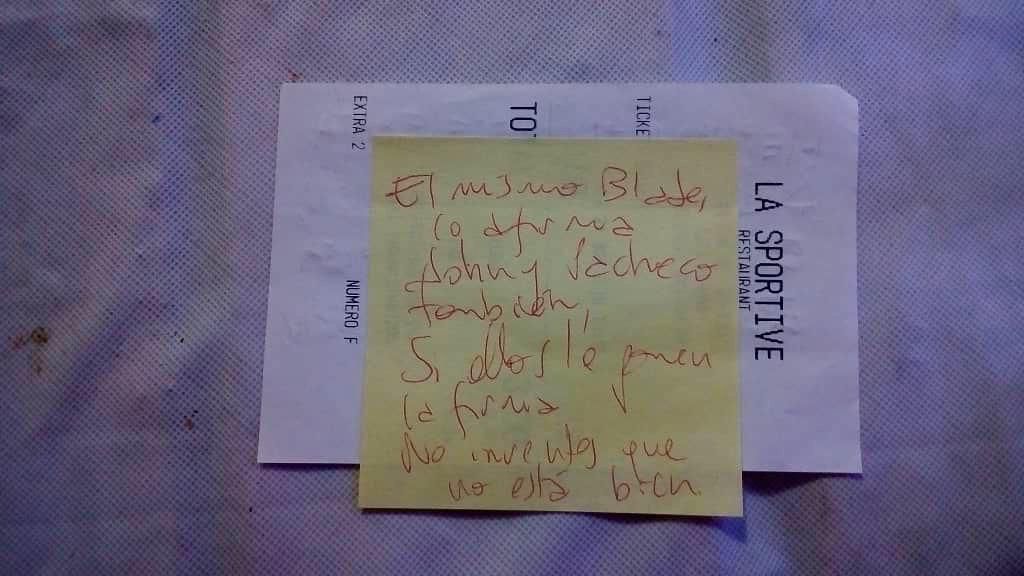 El mismo Blades,
lo afirma
Johny Pacheco
también,
Si ellos le ponen
la firma
No inventes que
no está bien.
LA SPORTIVE
RESTAURANT
TICKE
TOT
EXTRA 2
NUMERO F